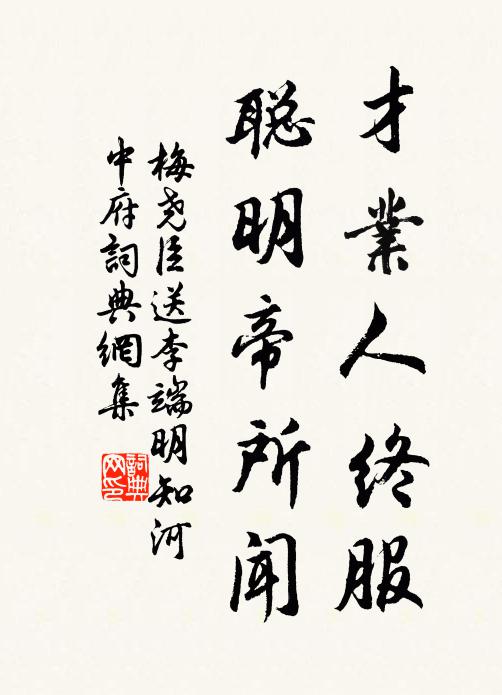 才業人终服
聪明帝所闻
梅尧臣送李端明知河
中府詞典網集
詞典網印